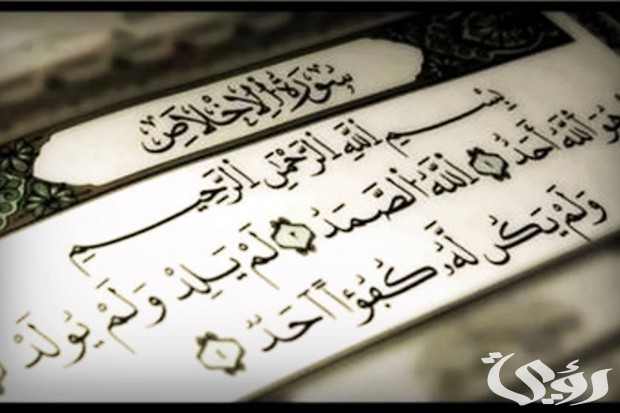 سُورَةُ الْإِخْلَاصِ
بِسْمِ اللَّهِ الرَّحْمَٰنِ الرَّحِيمِ
هُوَ اللَّهُ أَحَدٌ ۝١ اللَّهُ الصَّمَدُ ۝٢ لَمْ يَلِدْ وَلَمْ يُولَدْ
وَلَمْ يَكُن لَّهُ كُفُوًا أَحَدٌ ۝٤
رؤية